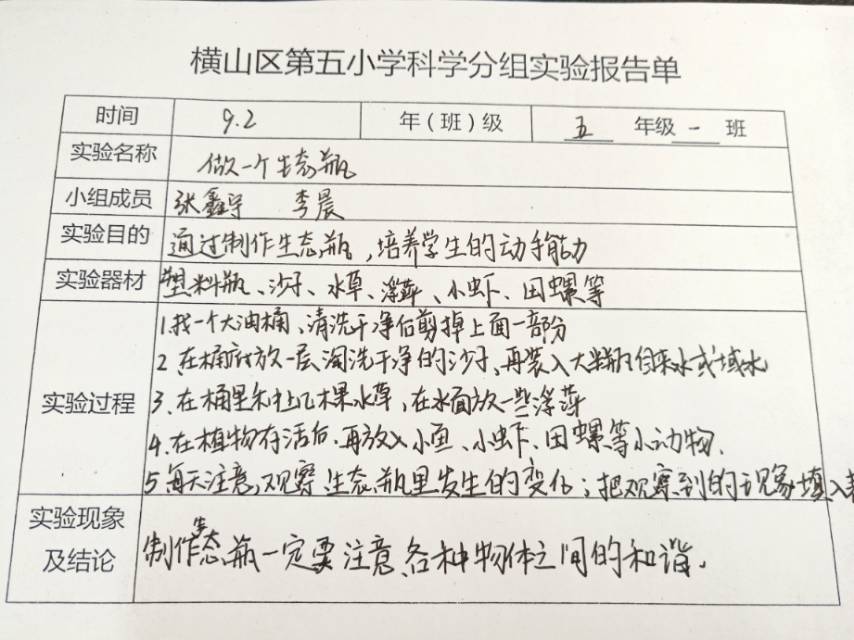 横山区第五小学科学分组实验报告单
时间 9.2 年(班)级 五 年级 一 班
实验名称 做一个生态瓶
小组成员 张鑫宇 李晨
实验目的 通过制作生态瓶,培养学生的动手能力
实验器材 塑料瓶、沙子、水草、浮萍、小虾、田螺等
实验过程
1.找一个大油桶,清洗干净后剪掉上面一部分
2 在桶底放一层淘洗干净的沙子,再装入大半瓶自来水或域水
3、在桶里种上几棵水草,在水面放一些浮萍
4.在植物存活后,再放入小鱼、小虾、田螺等小动物.
5 每天注意,观察生态瓶里发生的变化;把观察到的现象填入
实验现象及结论 制作生态瓶一定要注意各种物体之间的和谐.